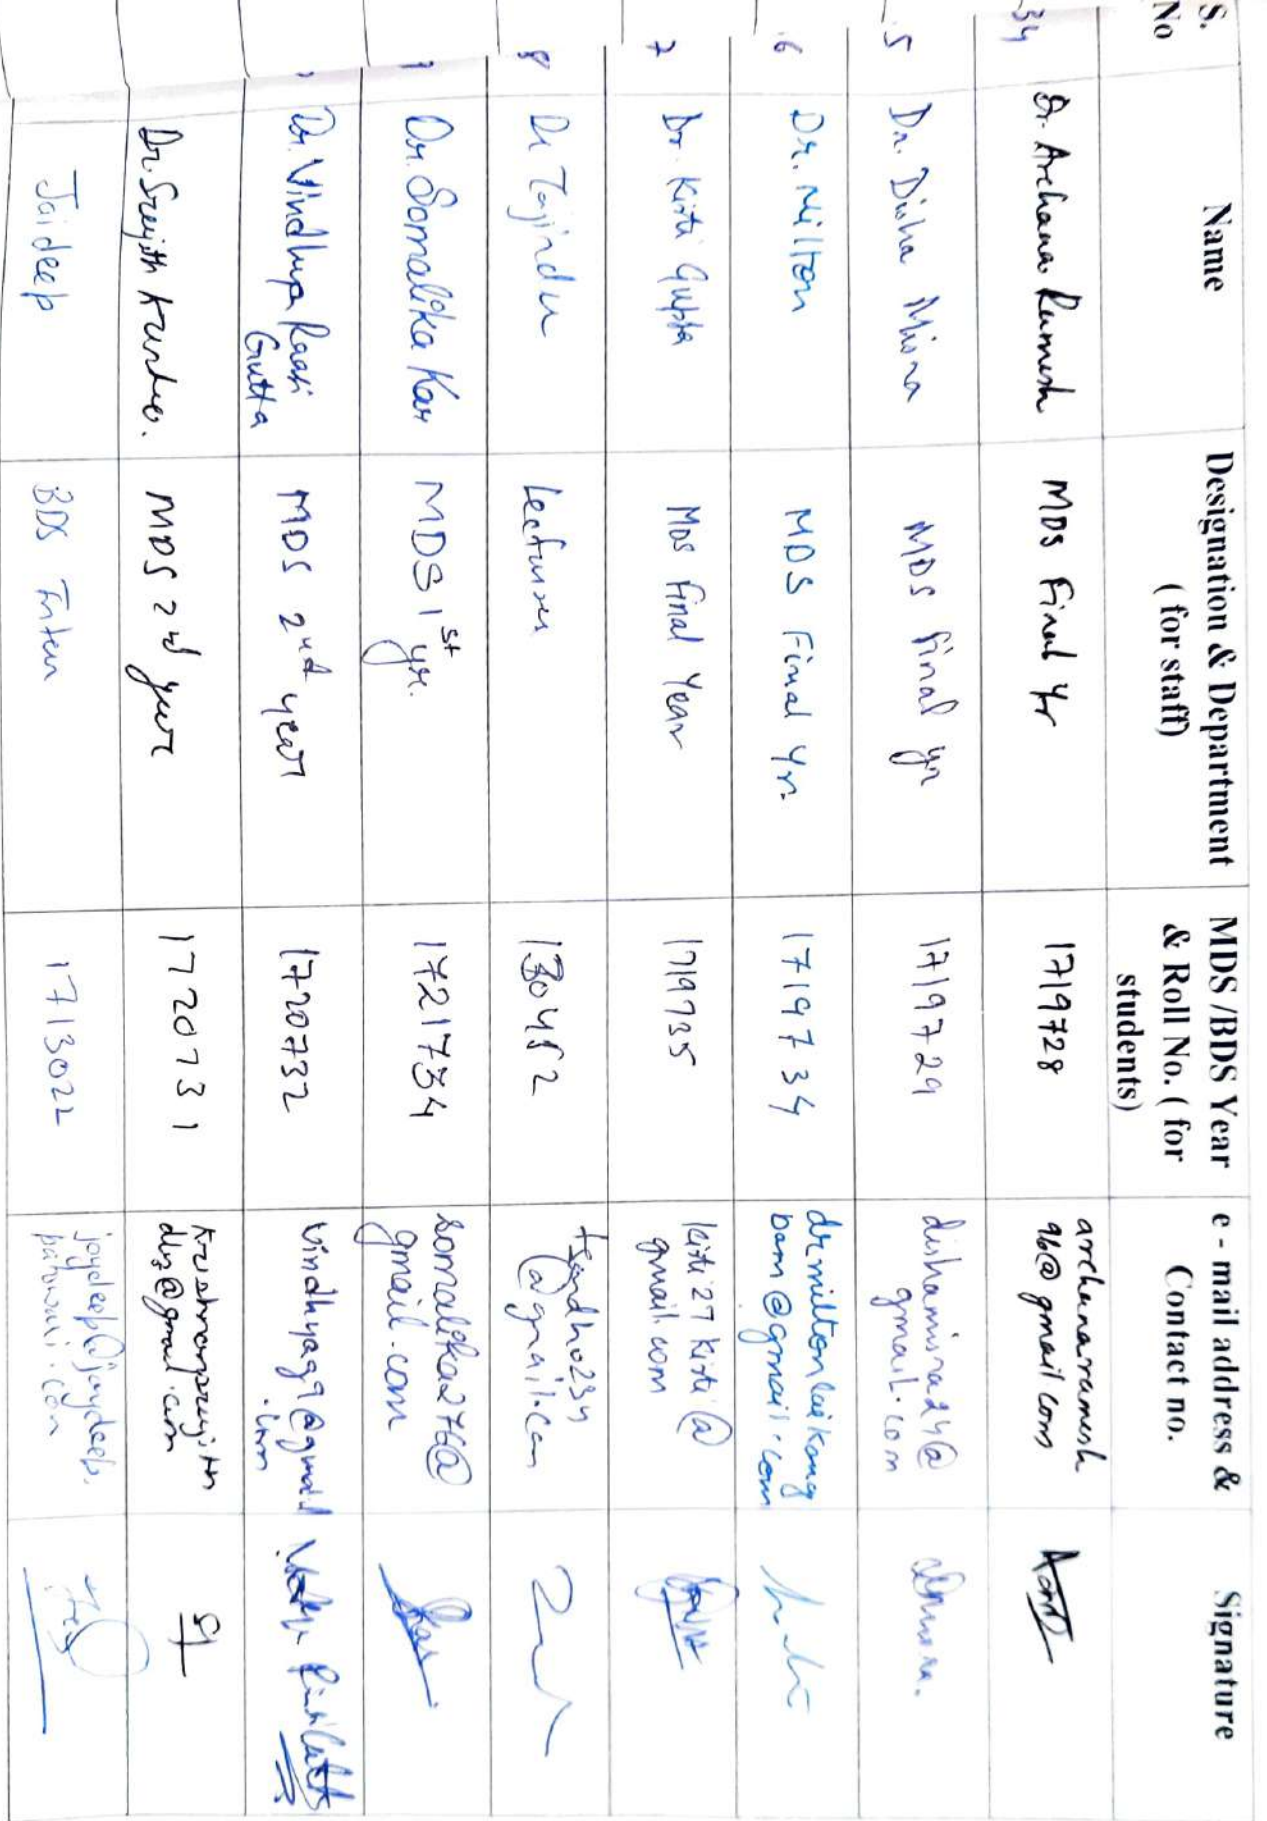 S. No Name Designation & Department ( for staff) MDS /BDS Year & Roll No. ( for students) e - mail address & Contact no. Signature
34 Dr. Archana Ramesh MDS Final Yr 1719728 archanaramesh96@gmail.com
5 Dr. Disha Misra MDS final yr 1719729 dishamisra24@gmail.com
6 Dr. Milton MDS Final Yr. 1719734 drmiltonlaikangbam@gmail.com
7 Dr. Kirti Gupta MDS Final Year 1719735 kirti27kirti@gmail.com
8 Dr Tajinder Lecturer
Dr. Somalika Kar MDS 1st yr. 1721734 somalika276@gmail.com
Dr. Vindhya Raasi Gutta MDS 2nd year 1720732 vindhyag9@gmail.com
Dr. Sreyjith MDS 2nd year 1720731
Jaideep BDS Intern 1713022